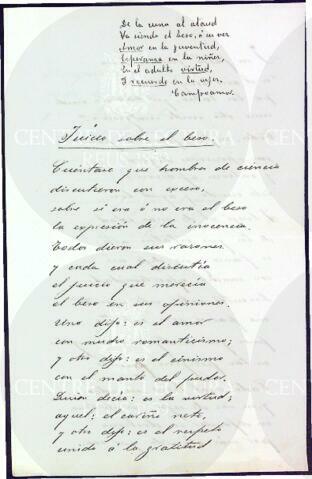 De la cuna al ataud
Va siendo el beso, á su vez
Amor en la juventud,
Esperanza en la niñez,
En el adulto virtud,
Y recuerdo en la vejez.
Campoamor.
Juicio sobre el beso.
Cuéntase que hombres de ciencia
discutieron con exceso,
sobre si era ó no era el beso
la expresión de la inocencia.
Todos dieron sus razones
y cada cual discutía
el juicio que merecía
el beso en sus opiniones.
Uno dijo: es el amor
con mudo romanticismo;
y otro dijo: es el cinismo
con el manto del pudor.
Quien decía: es la virtud;
aquel: el cariño neto,
y otro dijo: es el respeto
unido á la gratitud